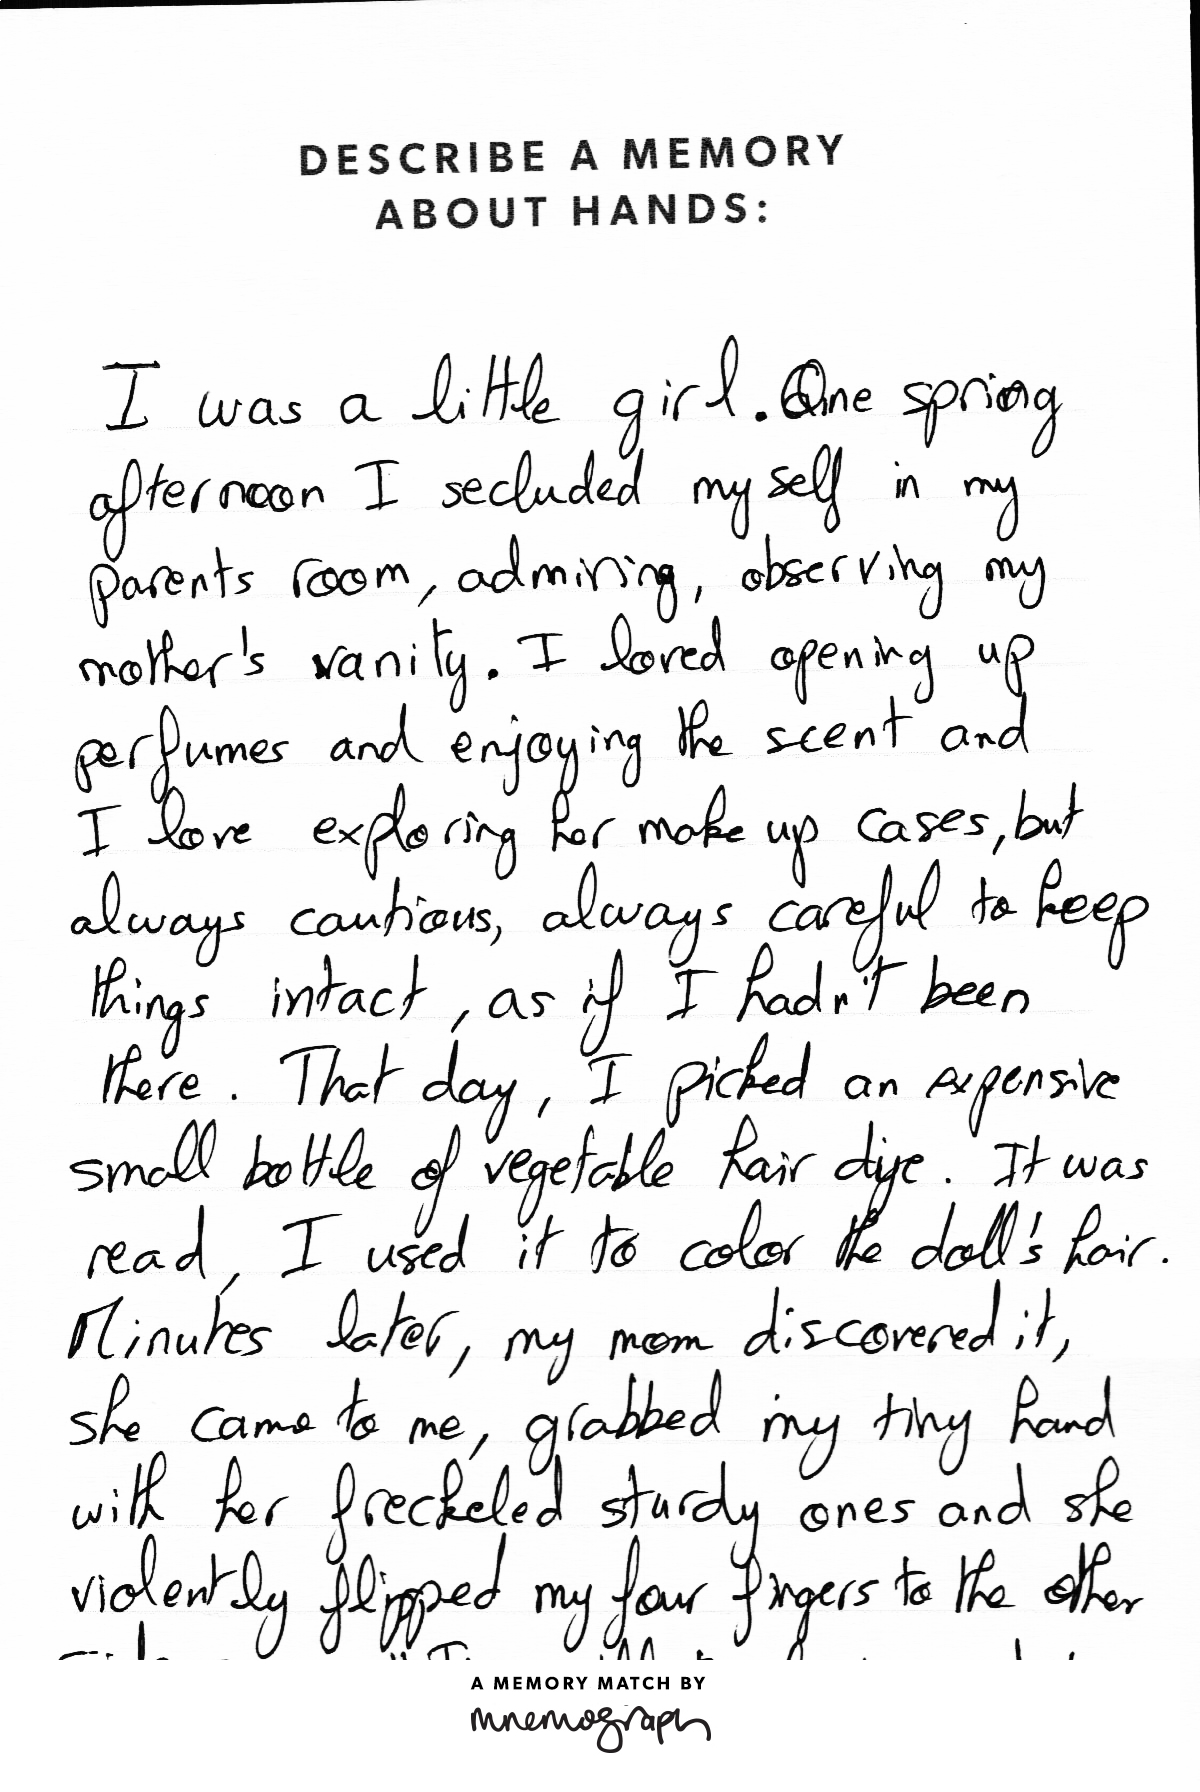 DESCRIBE A MEMORY
ABOUT HANDS:
I was a little girl. One spring
afternoon I secluded my self in my
parents room, admiring, observing my
mother's vanity. I loved opening up
perfumes and enjoying the scent and
I love exploring her make up cases, but
always cautious, always careful to keep
things intact, as if I hadn't been
there. That day, I picked an expensive
small bottle of vegetable hair dye. It was
read, I used it to color the doll's hair.
Minutes later, my mom discovered it,
she came to me, grabbed my tiny hand
with her freckeled sturdy ones and she
violently flipped my four fingers to the other
A MEMORY MATCH BY
mnemograph